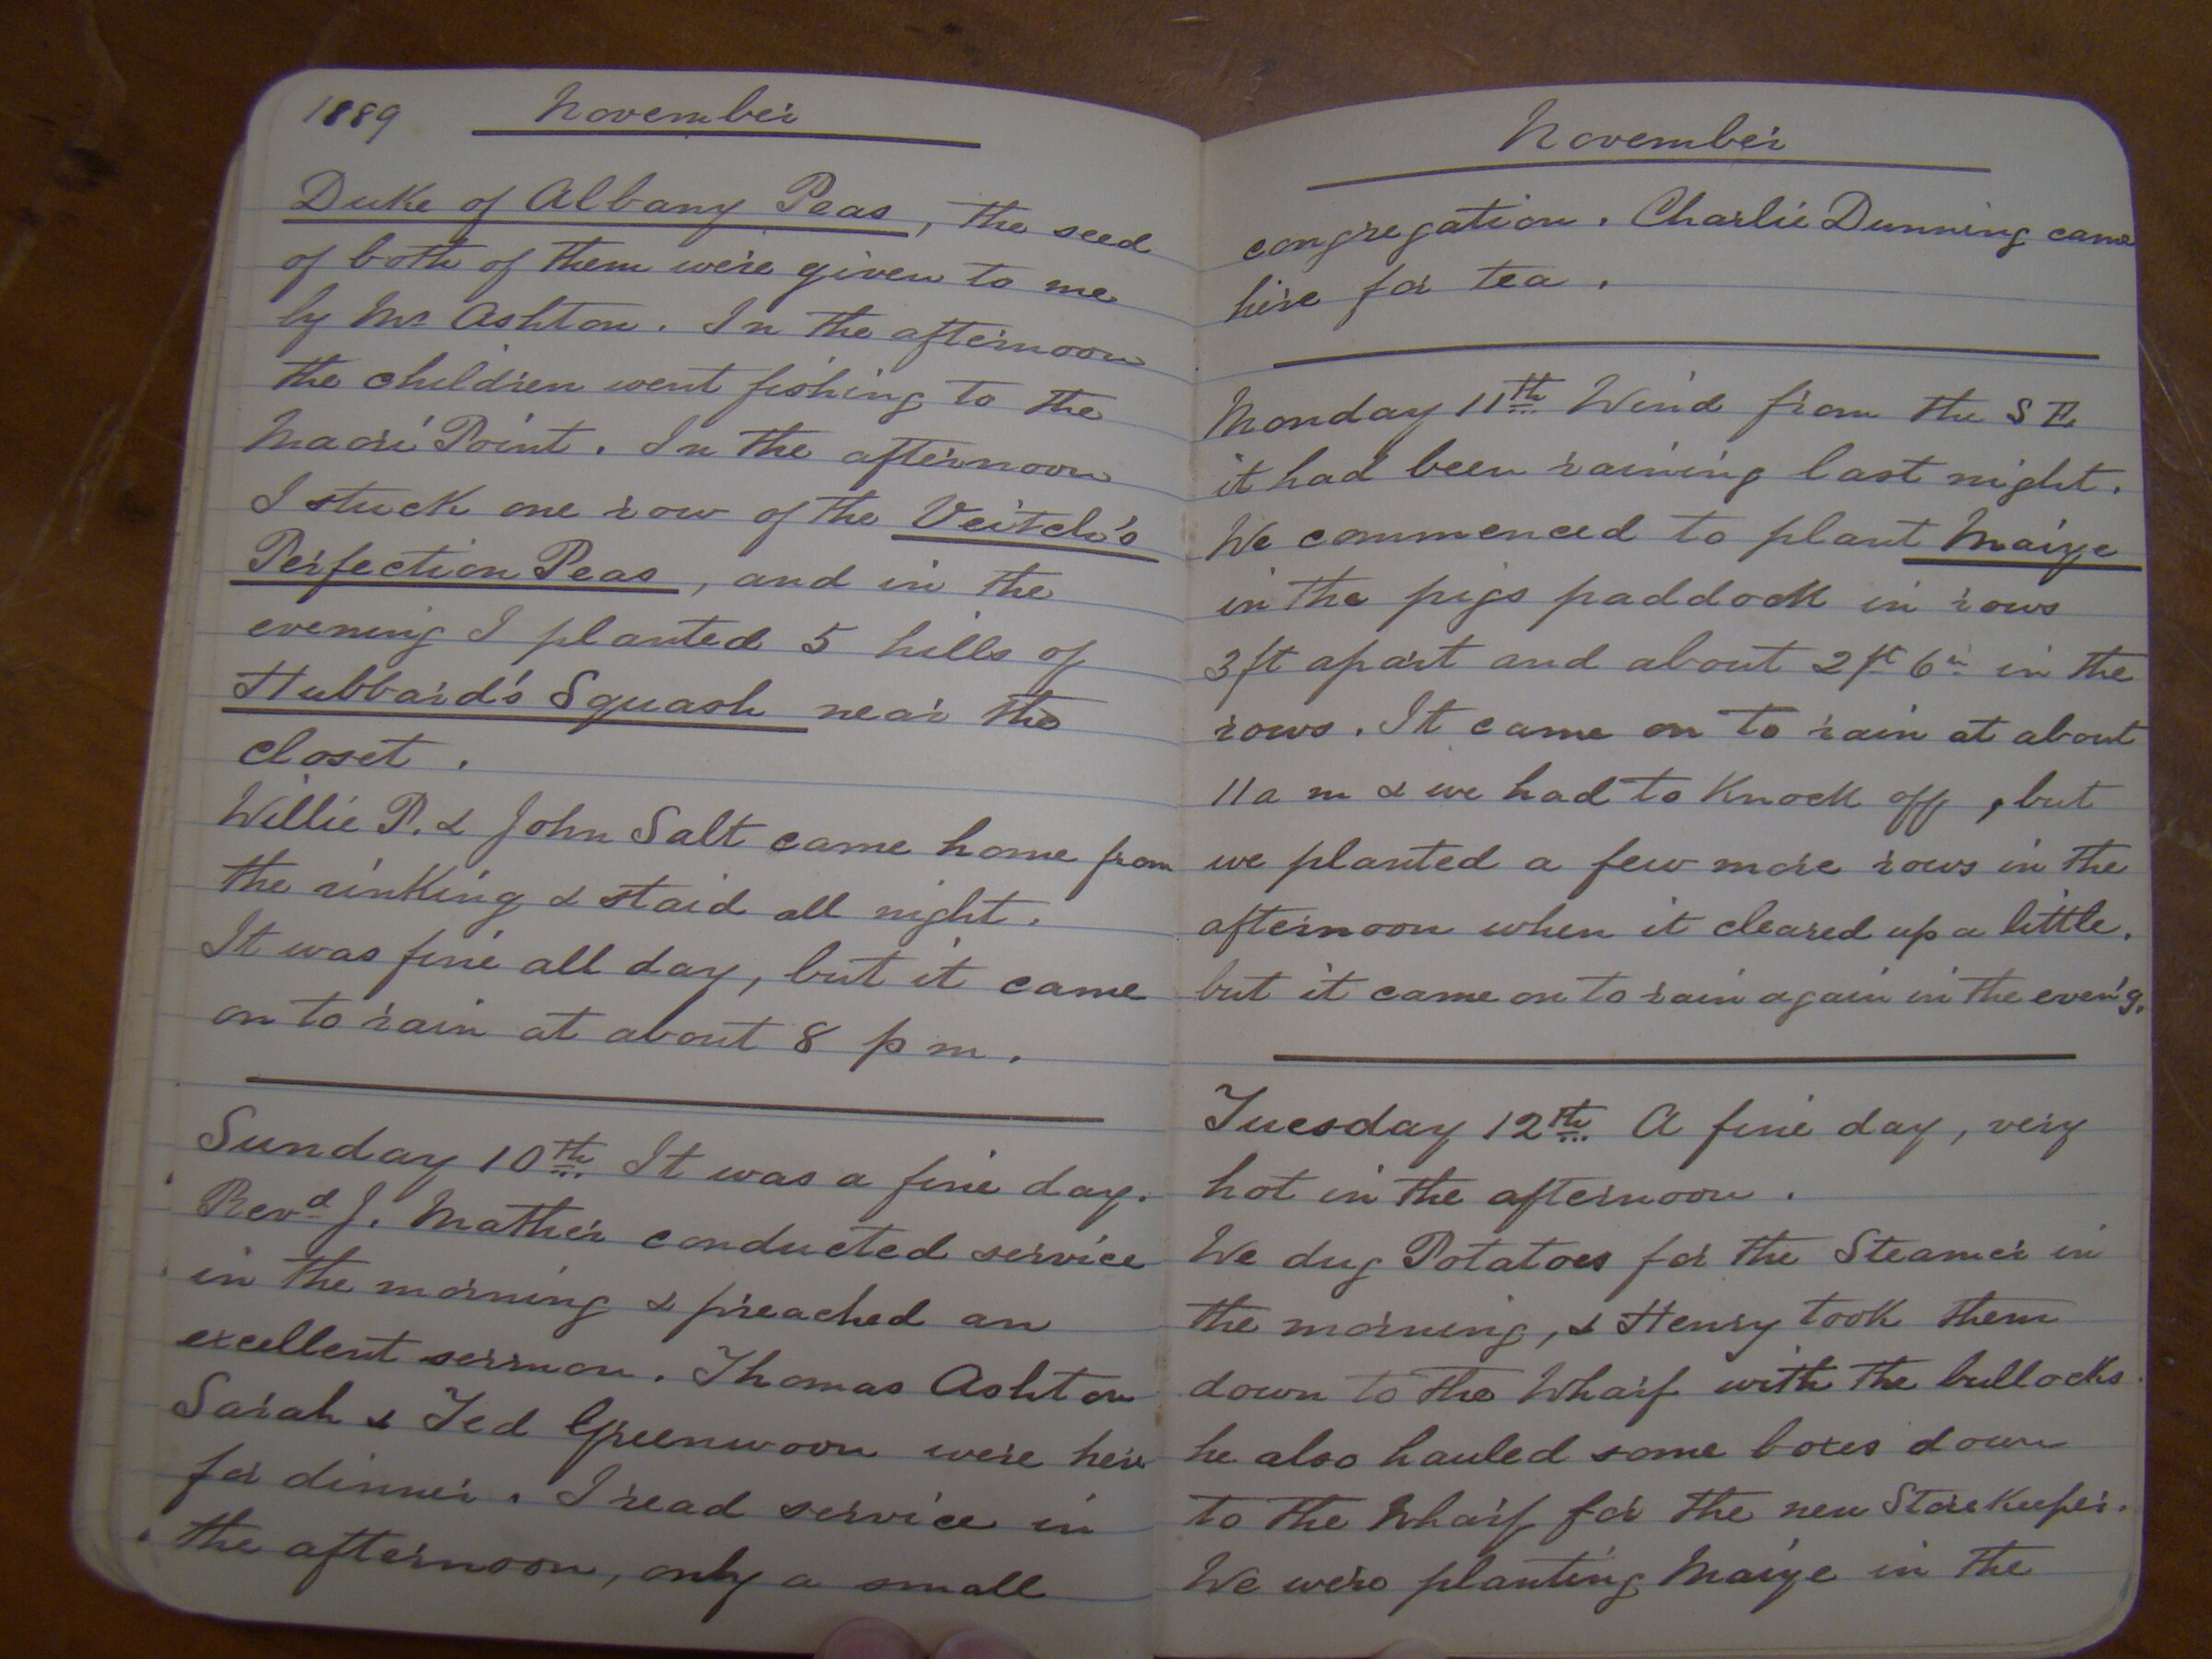 1889 November
Duke of Albany Peas, the seed
of both of them were given to me
by Mr Ashton. In the afternoon
the children went fishing to the
Maori Point. In the afternoon
I stuck one row of the Veitch's
Perfection Peas, and in the
evening I planted 5 hills of
Hubbard's Squash near the
closet.
Willie P. & John Salt came home from
the rinking & staid all night.
It was fine all day, but it came
on to rain at about 8 p m.
Sunday 10th It was a fine day.
Revd J. Mather conducted service
in the morning & preached an
excellent sermon. Thomas Ashton
Sarah & Ted Greenwoon were here
for dinner. I read service in
the afternoon, only a small
November
congregation. Charlie Dunning came
here for tea.
Monday 11th Wind from the S E
it had been raining last night.
We commenced to plant Maize
in the pigs paddock in rows
3 ft apart and about 2 ft 6 in in the
rows. It came on to rain at about
11 a m & we had to knock off, but
we planted a few more rows in the
afternoon when it cleared up a little.
but it came on to rain again in the even'g.
Tuesday 12th A fine day, very
hot in the afternoon.
We dug Potatoes for the Steamer in
the morning, & Henry took them
down to the Wharf with the bullocks
he also hauled some boxes down
to the Wharf for the new Storekeeper.
We were planting Maize in the